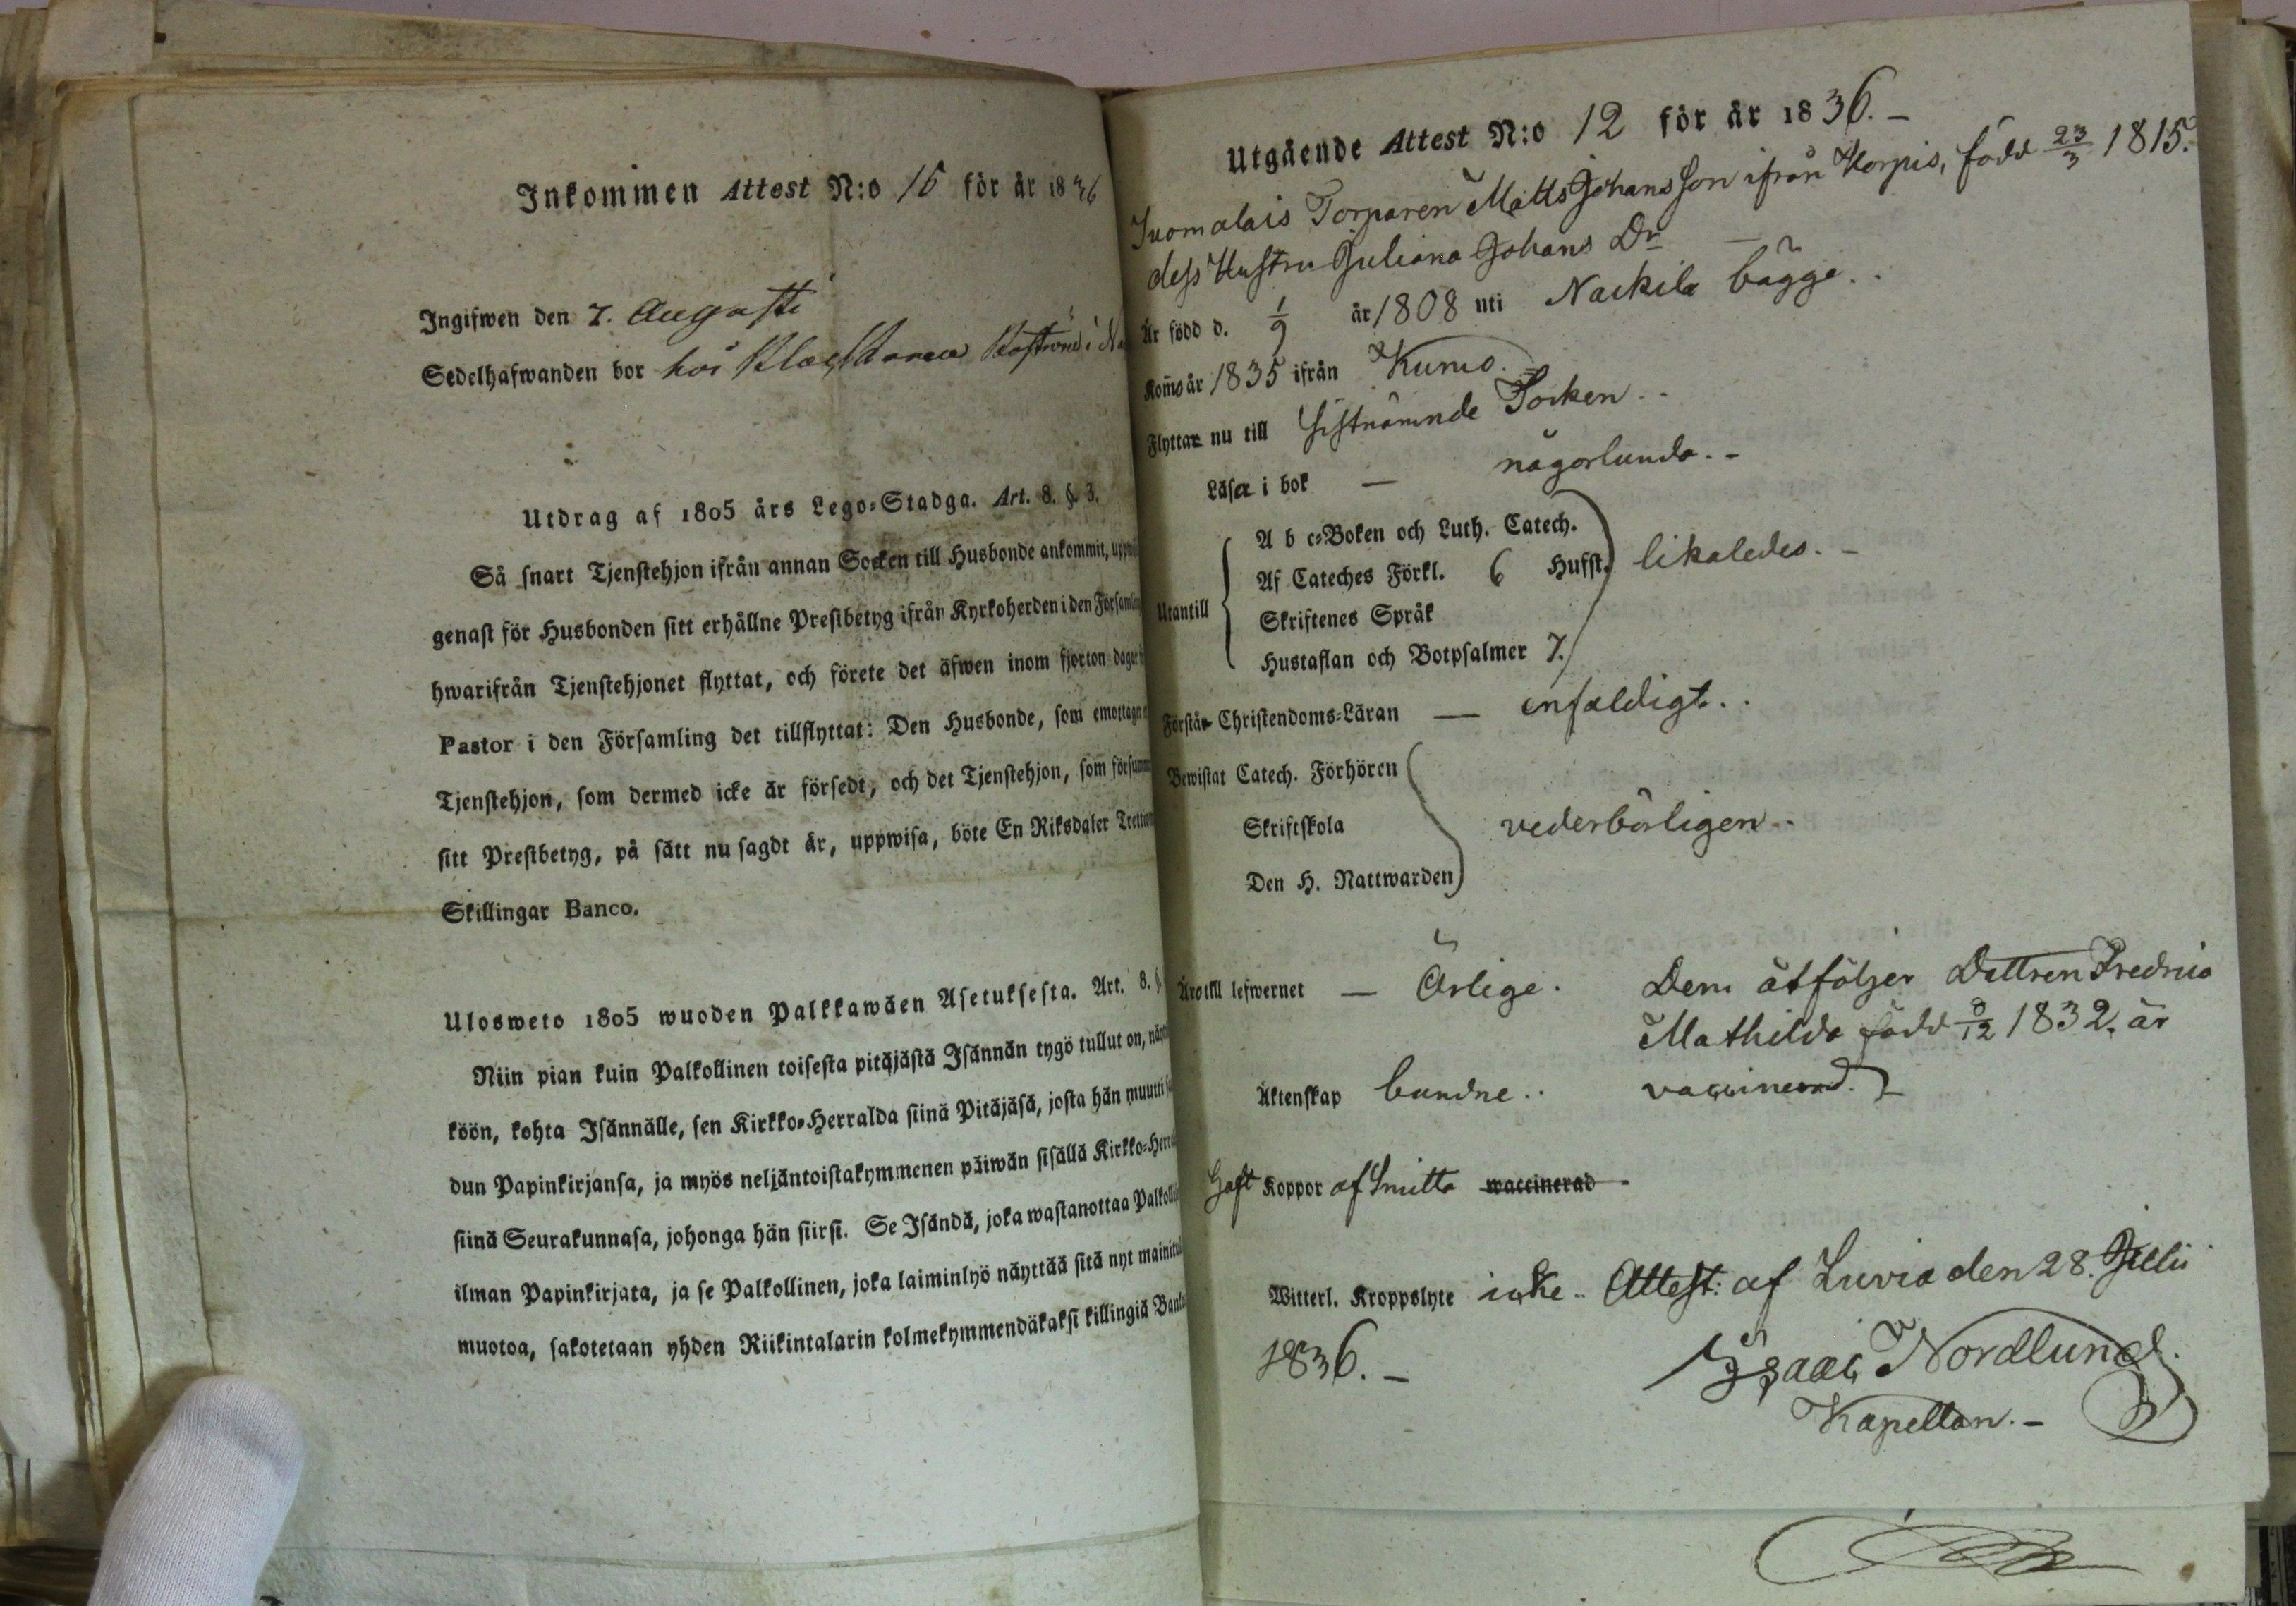 Inkommen Attest N:o 15 för år 1836
Ingifwen den 7. Augusti
Sedelhafwanden bor hos Klockaren
Utdrag af 1805 års Lego-Stadga. Art. 8. §. 3.
Så snart Tjenstehjon ifrån annan Socken till Husbonde ankommit,
genast för Husbonden sitt erhållne Prestbetyg ifrån Kyrkoherden i den
hwarifrån Tjenstehjonet flyttat, och förete det äfwen inom fjorton
Pastor i den Församling det tillflyttat: Den Husbonde, som
Tjenstehjon, som dermed icke är försedt, och det Tjenstehjon, som
sitt Prestbetyg, på sätt nu sagdt är, uppwisa, böte En Riksdaler
Skillingar Banco.
Ulosweto 1805 wuoden Palkkawäen Asetuksesta. Art. 8. §
Niin pian kuin Palkollinen toisesta pitäjästä Isännän tygö tullut on,
köön, kohta Isännälle, sen Kirkko-Herralda siinä Pitäjäsä, josta hän muutti
dun Papinkirjansa, ja myös neljäntoistakymmenen päiwän sisällä
siinä Seurakunnasa, johonga hän siirsi. Se Isändä, joka wastanottaa
ilman Papinkirjata, ja se Palkollinen, joka laiminlyö näyttää sitä nyt
muotoa, sakotetaan yhden Riikintalarin kolmekymmendäkaksi killingiä
Utgående Attest N:o 12 för år 1836. –
Juomalais Torparen Matts Johansson ifrån Korpis, född 23/3 1815.
dess Hustru Juliana Johans Dr –
Är född d. 1/9 år 1808 uti Nackila bägge..
Komo år 1835 ifrån Kumo.
Flytta nu till sistnämnde Socken..
Läsa i bok — någorlunda. –
A b c-Boken och Luth. Catech.
Af Cateches Förkl. 6 Hufst. likaledes. –
Utantill
Skriftenes Språk
Hustaflan och Botpsalmer 7.
Förstå Christendoms-Läran — enfaldigt..
Bewistat Catech. Förhören
Skriftskola vederbörligen..
Den H. Nattwarden
Äro till lefwernet — Ärlige. Dem åtföljer Dottren Fredrica
Mathilda född 8/12 1832, är
Äktenskap bundne.. vaccinerad.
Haft Koppor af Smitta waccinerad
Witterl. Kroppslyte icke.. Attest: af Luvia den 28. Julii
1836. –
Isaac Nordlund.
Kapellan. –